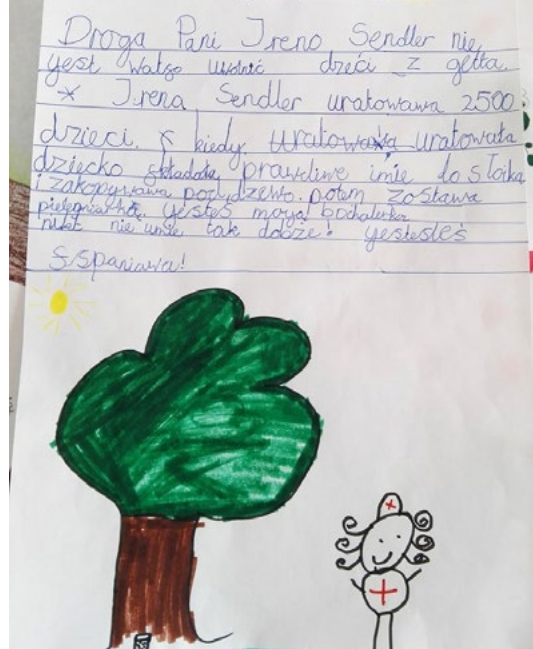 Droga Pani Ireno Sendler nie
yest watgo uwolnić dzieci z getta.
* Irena Sendler uratowawa 2500
dzieci. kiedy uratowała
dziecko składała prawdiwe imie do słoika
i zakopywawa pod dżewo. potem zostawa
pielęgniarką. yesteś moya bochaterka
nikt nie umie tak dobże! yestesleś
spaniawa!